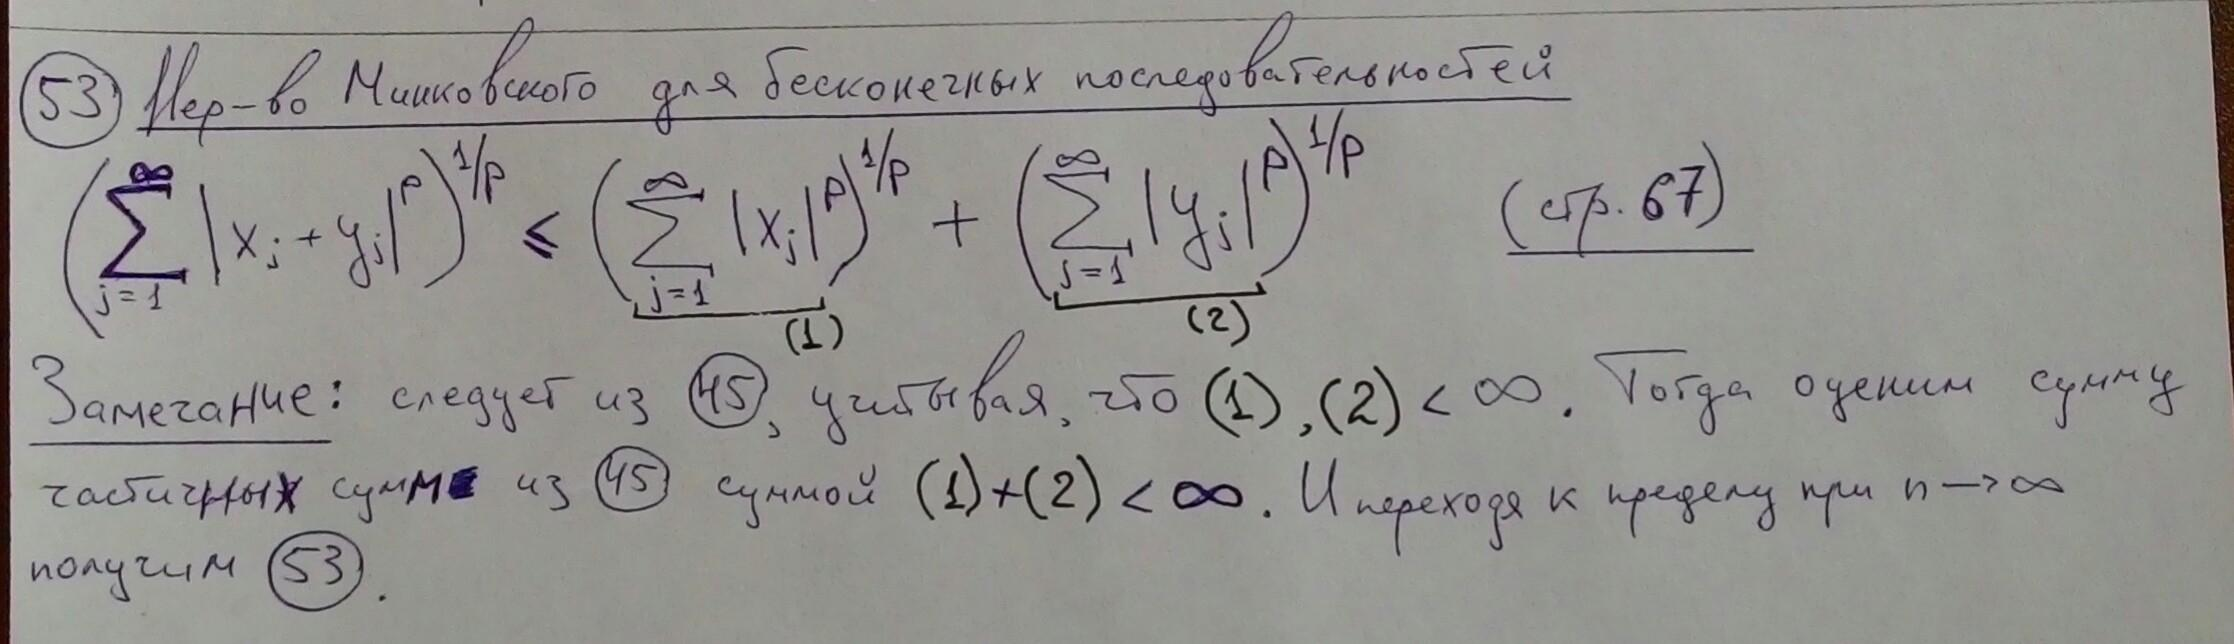 53 Нер-во Минковского для бесконечных последовательностей
(∑_{j=1}^{∞} |x_j + y_j|^p)^{1/p} ≤ (∑_{j=1}^{∞} |x_j|^p)^{1/p} + (∑_{j=1}^{∞} |y_j|^p)^{1/p} (стр. 67)
(1) (2)
Замечание: следует из 45, учитывая, что (1), (2) < ∞. Тогда оценим сумму
частичных сумм из 45 суммой (1)+(2) < ∞. И переходя к пределу при n→∞
получим 53.